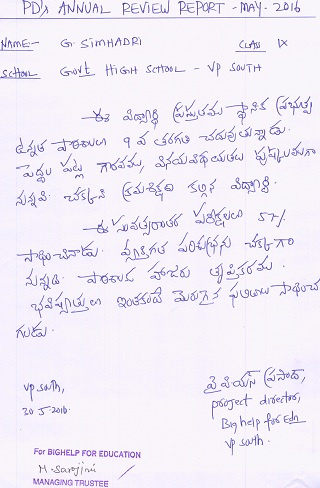 PD's ANNUAL REVIEW REPORT - MAY - 2016
NAME:- G. SIMHADRI CLASS IX
SCHOOL GOVT HIGH SCHOOL - VP SOUTH
ఈ విద్యార్థి ప్రస్తుతము స్థానిక ప్రభుత్వ
ఉన్నత పాఠశాలలో 9 వ తరగతి చదువుతున్నాడు.
పెద్దల పట్ల గౌరవము, వినయవిధేయతలు పుష్కలముగా
నున్నవి. చక్కని క్రమశిక్షణ కల్గిన విద్యార్థి.
ఈ సంవత్సరాంతర పరీక్షలలో 57%
సాధించినాడు. వ్యక్తిగత పరిశుభ్రత చక్కగా
నున్నది. పాఠశాల హాజరు తృప్తికరము.
భవిష్యత్తులో ఇంతకంటే మెరుగైన ఫలితాలు సాధించ
గలడు.
VP South,
30-5-2016.
పైపియస్ ప్రసాద్,
project director,
Big help for Edn
VP South.
For BIGHELP FOR EDUCATION
M. Sarojini
MANAGING TRUSTEE